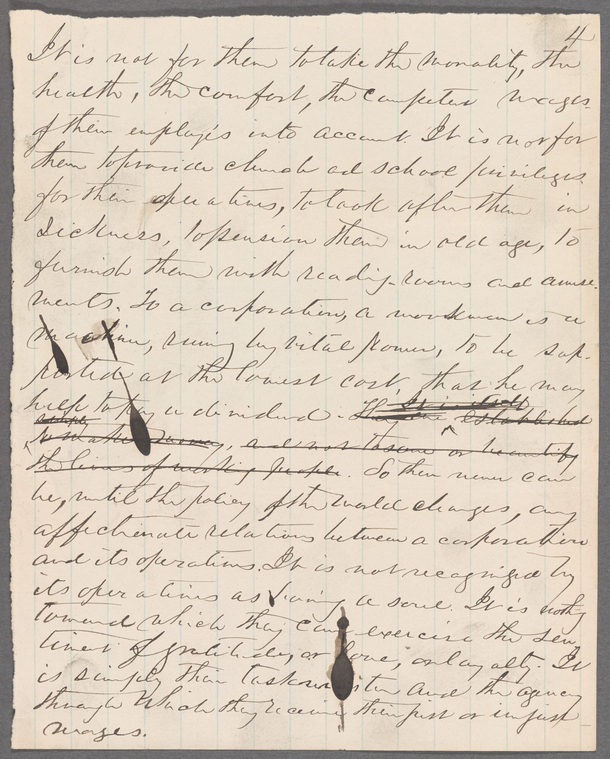 4
It is not for them to take the morality, the
health, the comfort, the competen wages
of their employés into account. It is not for
them to provide church ad school privileges
for their operatives, to look after them in
sickness, to pension them in old age, to
furnish them with reading-rooms and amuse-
ments. To a corporation, a workman is a
machine, runing by vital power, to be sup-
ported at the lowest cost, that he may
help to pay a dividend. They are established
simply
to make money, and not to some or beautify
the lives of working people. So there never can
be, until the policy of the world changes, any
affectionate relations between a corporation
and its operations. It is not recognized by
its operatives as having a soul. It is nothing
toward which they can exercise the sen
timent of gratitude, or love, or loyalty. It
is simply their taskmaster and the agency
through which they receive their just or unjust
wages.